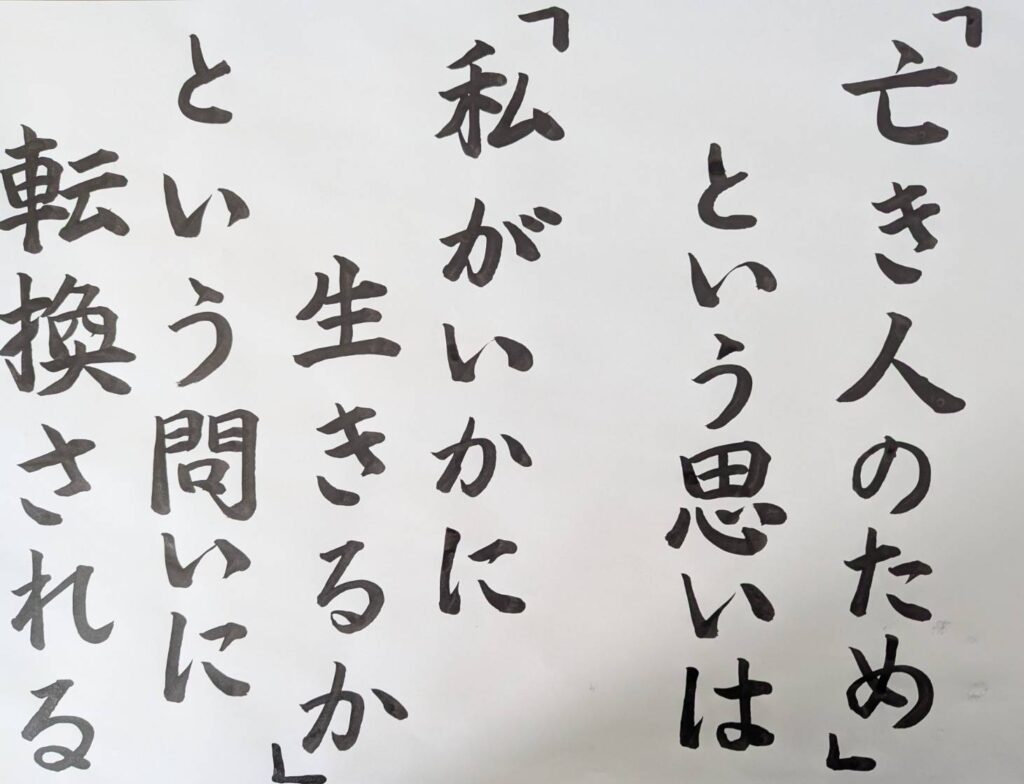 「亡き人のため」
という思いは
「私がいかに
生きるか」
という問いに
転換される